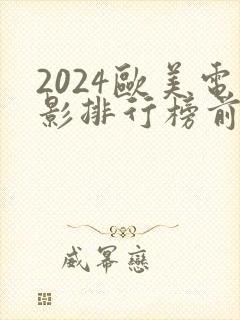 2024歐美電
影排行榜前
威冪戀